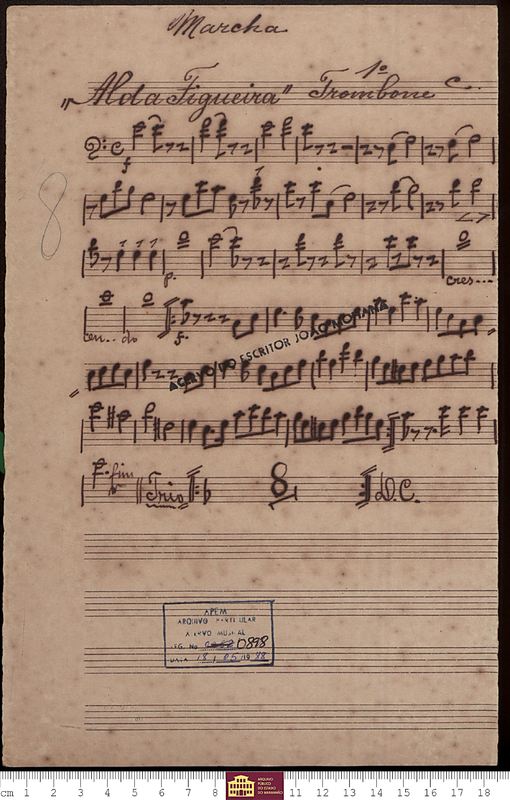 Marcha
"Alda Figueira" 1º Trombone C.
f
8
p.
cres...
cen.. do f.
ACERVO DO ESCRITOR JOÃO MOHANA
fim
Trio 8 D.C.
APEM
ARQUIVO PARTICULAR
ACERVO MUSICAL
REG. No 0898
DATA 18 / 05 /19 88
cm 1 2 3 4 5 6 7 8 11 12 13 14 15 16 17 18
ARQUIVO
PÚBLICO
DO ESTADO
DO MARANHÃO